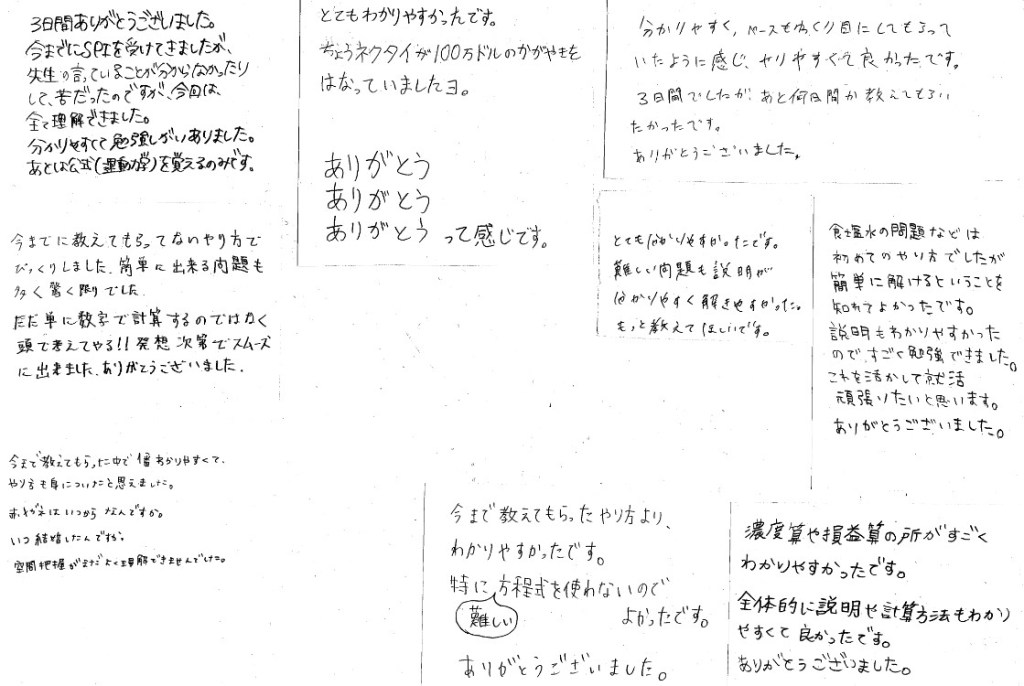 3日間ありがとうございました。
今までにSPIを受けてきましたが、
先生の言っていることが分からなかったり
して、苦だったのですが、今回は、
全て理解できました。
分かりやすくて勉強しがいありました。
あとは公式(運動力学)を覚えるのみです。
とてもわかりやすかったです。
ちょうネクタイが100万ドルのかがやきを
はなっていましたヨ。
ありがとう
ありがとう
ありがとう って感じです。
分かりやすく、ペースもゆっくり目にしてもらって
いたように感じ、やりやすくて良かったです。
3日間でしたが、あと何日間か教えてもらい
たかったです。
ありがとうございました。
今までに教えてもらってないやり方で
びっくりしました。簡単に出来る問題も
多く驚く限りでした。
ただ単に数字で計算するのではなく
頭で考えてやる!!発想次第でスムーズ
に出来ました。ありがとうございました。
とてもわかりやすかったです。
難しい問題も説明が
わかりやすく解きやすかった。
もっと教えてほしいです。
食塩水の問題などは
初めてのやり方でしたが
簡単に解けるということを
知れてよかったです。
説明もわかりやすかった
ので、すごく勉強できました。
これを活かして就活
頑張りたいと思います。
ありがとうございました。
今まで教えてもらった中で1番わかりやすくて、
やり方も身についたと思えました。
はいつから なんですか。
いつ結婚したんですか。
空間把握がまだよく理解できませんでした。
今まで教えてもらったやり方より、
わかりやすかったです。
特に方程式を使わないので
難しい
よかったです。
ありがとうございました。
濃度算や損益算の所がすごく
わかりやすかったです。
全体的に説明や計算方法もわかり
やすくて良かったです。
ありがとうございました。